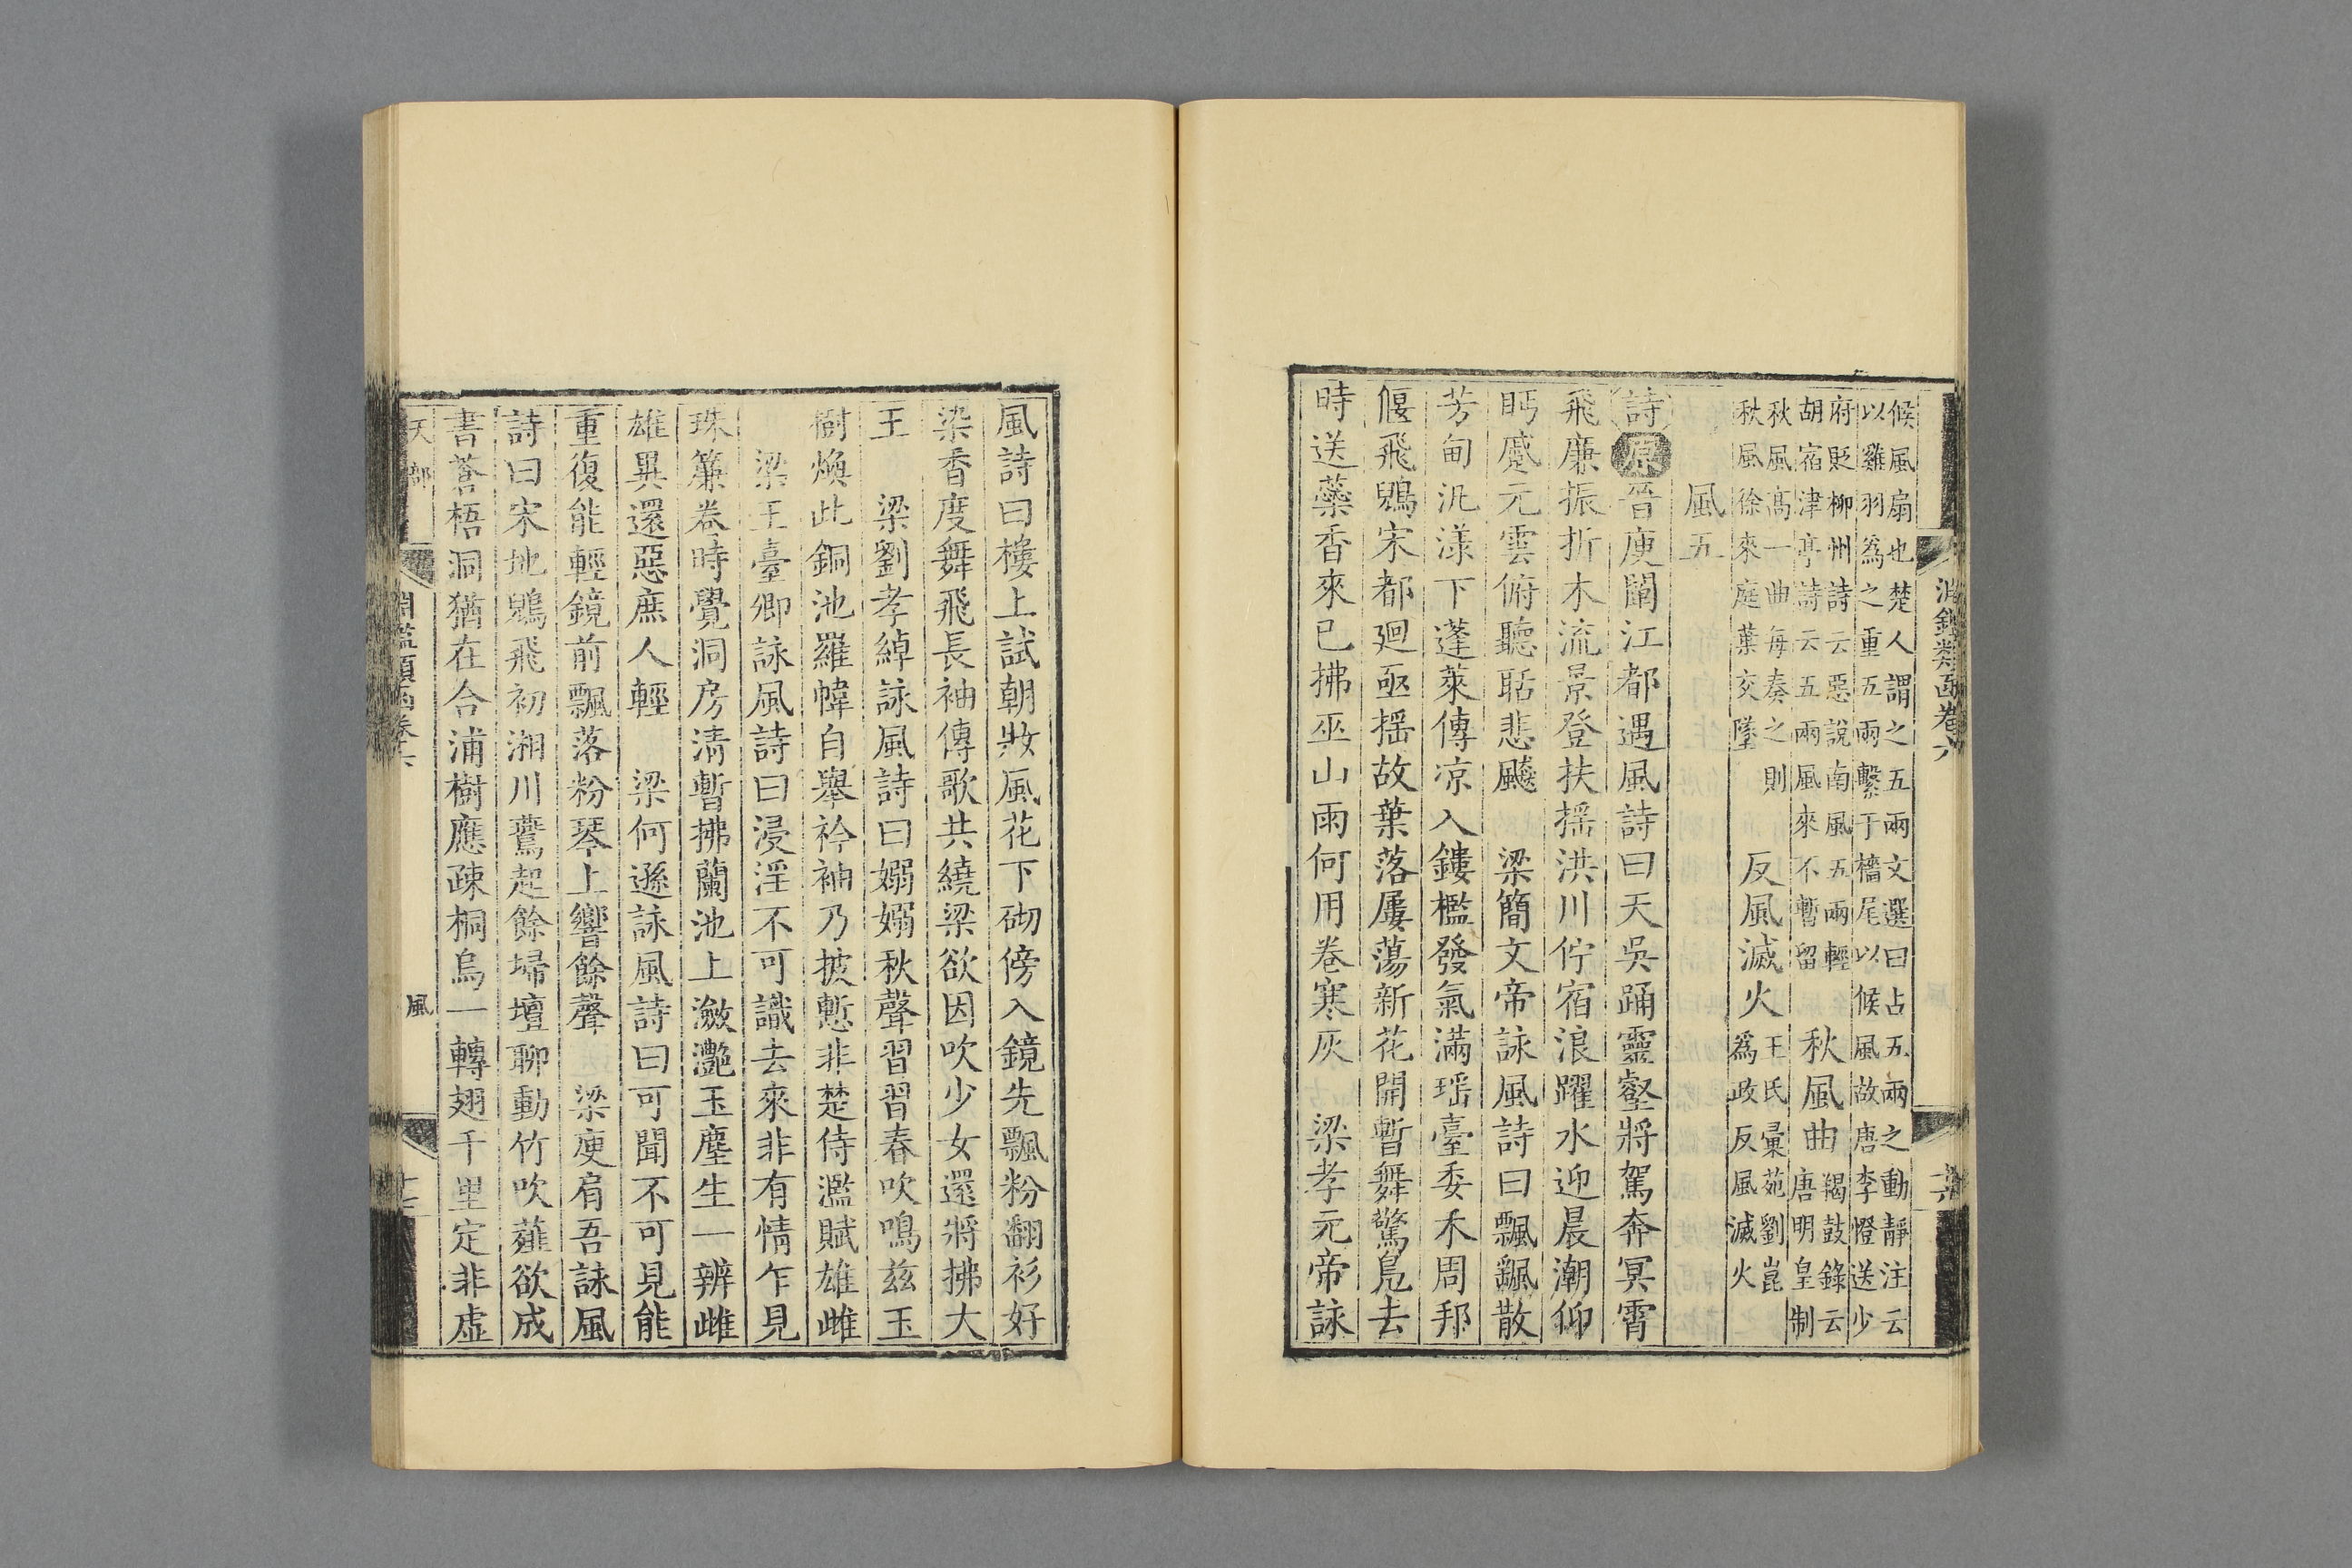 淵鑑類函卷六
候風扇也楚人謂之五兩文選曰占五兩之動靜注云
以雞羽爲之重五兩繫于檣尾以候風故唐李憕送少
府貶柳州詩云惡說南風五兩輕　秋風曲羯鼓錄云
胡宿津亭詩云五兩風來不暫留　唐明皇制
秋風高一曲每奏之則　反風滅火王氏彙苑劉崑
秋風徐來庭葉交墜　爲政反風滅火
風五
詩原晉庾闡江都遇風詩曰天吳踊靈壑將駕奔冥霄
飛廉振折木流景登扶揺洪川佇宿浪躍水迎晨潮仰
眄蹙元雲俯聽聒悲飈　梁簡文帝詠風詩曰飄颻散
芳甸汎漾下蓬萊傳凉入鏤檻發氣滿瑶臺委禾周邦
偃飛鶂宋都廻亟揺故葉落屢蕩新花開暫舞驚鳧去
時送藥香來已拂巫山雨何用卷寒灰　梁孝元帝詠
風詩曰樓上試朝妝風花下砌傍入鏡先飄粉翻衫好
染香度舞飛長袖傳歌共繞梁欲因吹少女還將拂大
王　梁劉孝綽詠風詩曰嫋嫋秋聲習習春吹鳴茲玉
樹煥此銅池羅幃自舉衿袖乃披慙非楚侍濫賦雄雌
梁王臺卿詠風詩曰浸淫不可識去來非有情乍見
珠簾卷時覺洞房淸暫拂蘭池上瀲灧玉塵生一辨雌
雄異還惡庶人輕　梁何遜詠風詩曰可聞不可見能
重復能輕鏡前飄落粉琴上響餘聲　梁庾肩吾詠風
詩曰宋地鶂飛初湘川鷰起餘埽壇聊動竹吹薤欲成
書蒼梧洞猶在合浦樹應疎桐烏一轉翅千里定非虛
天部　淵鑑類函卷六　風